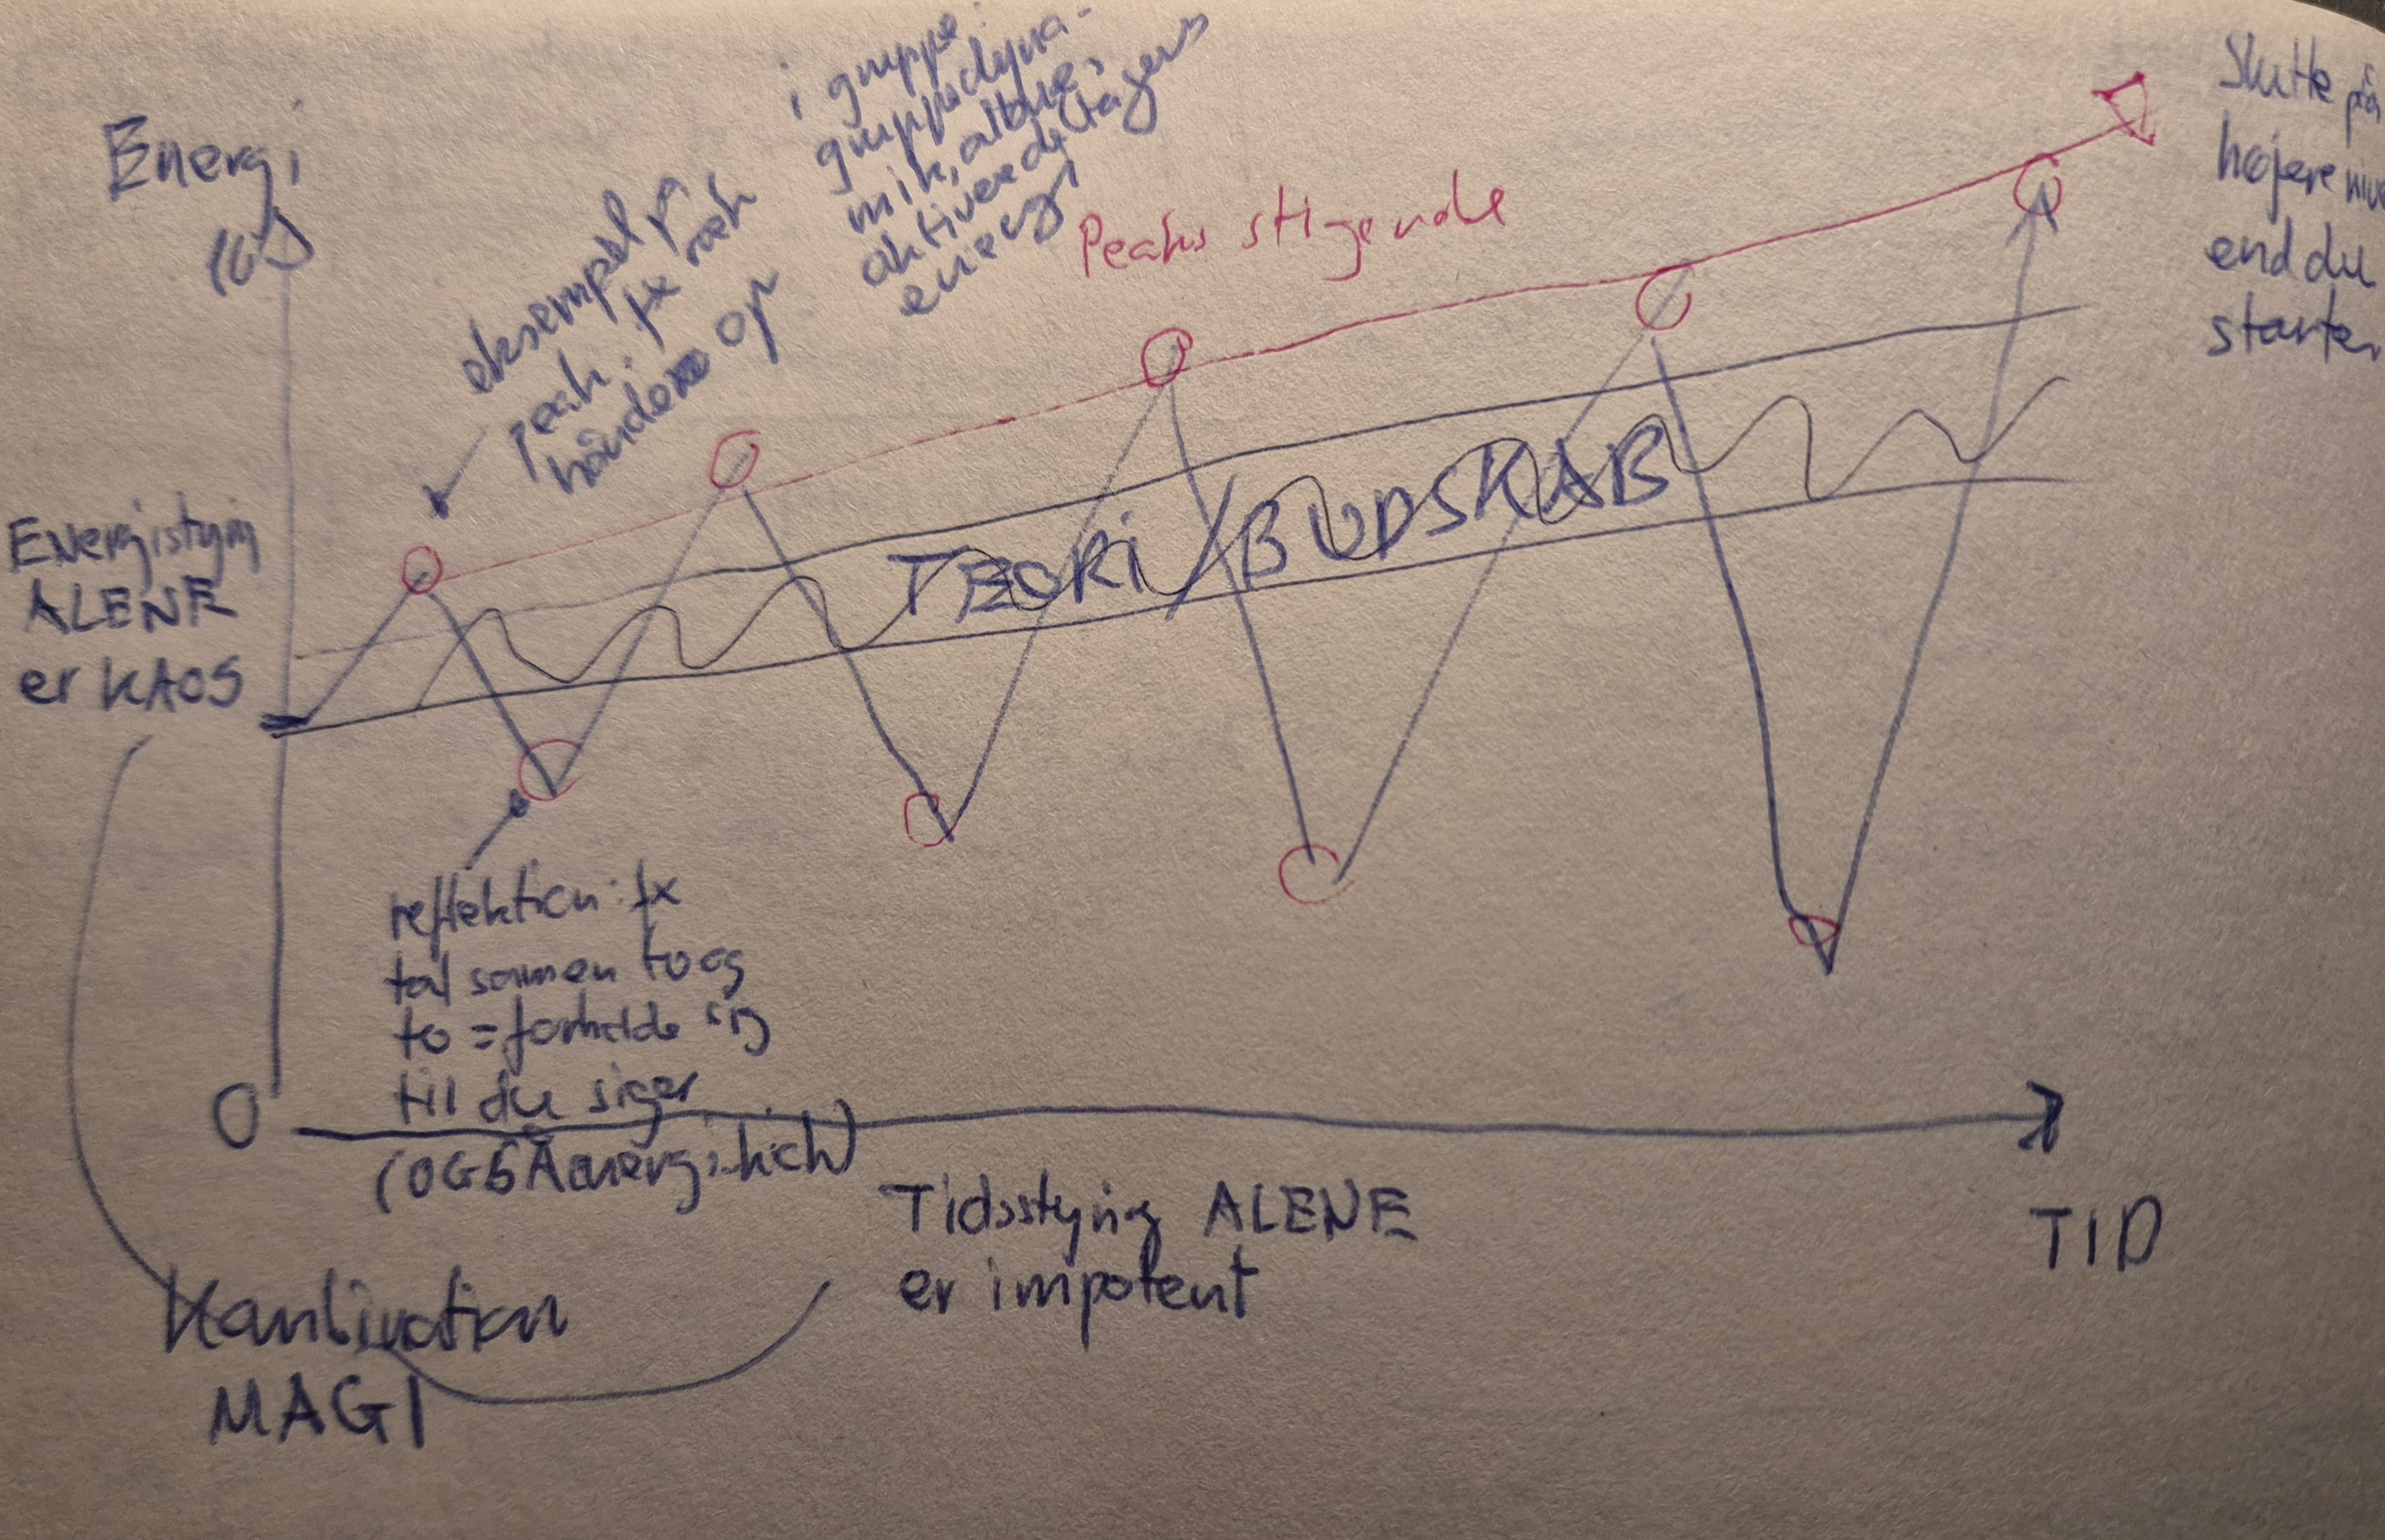 Energi
10
eksempel på
peak: fx ræk
hånden op
i gruppe:
gruppedyna-
mik, albue,
aktivere deltagers
energi
Peaks stigende
Slutte på
højere niv
end du
starter
Energistyring
ALENE
er KAOS
TEORI/BUDSKAB
reflektion: fx
tal sammen to og
to = forholde sig
til du siger
(OGSÅ energi
0
TID
Tidsstyring ALENE
er impotent
Kombination
MAGI